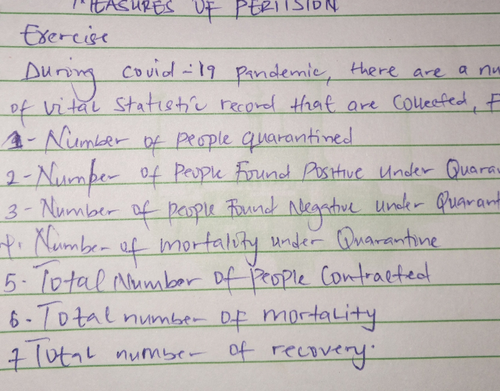 MEASURES OF PERTISION
Exercise
During covid-19 pandemic, there are a nu
of vital statistic record that are collected, F
1- Number of people quarantined
2- Number of People Found Positive under Quara
3- Number of people Found Negative under Quarant
4. Number of mortality under Quarantine
5. Total Number of People Contracted
6. Total number of mortality
7 Total number of recovery.